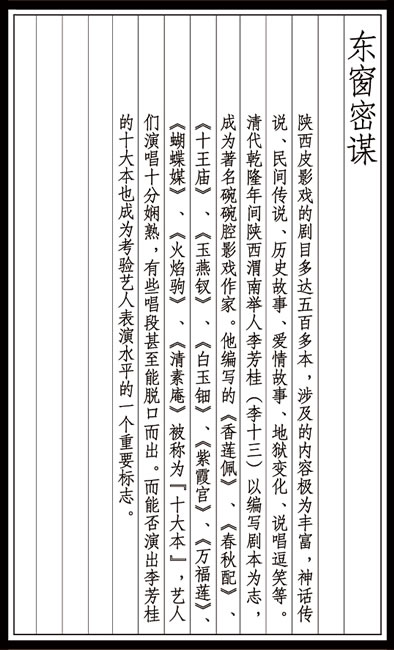 东窗密谋
陕西皮影戏的剧目多达五百多本，涉及的内容极为丰富，神话传
说、民间传说、历史故事、爱情故事、地狱变化、说唱逗笑等。
清代乾隆年间陕西渭南举人李芳桂（李十三）以编写剧本为志，
成为著名碗碗腔影戏作家。他编写的《香莲佩》、《春秋配》、
《十王庙》、《玉燕钗》、《白玉钿》、《紫霞宫》、《万福莲》、
《蝴蝶媒》、《火焰驹》、《清素庵》被称为『十大本』，艺人
们演唱十分娴熟，有些唱段甚至能脱口而出。而能否演出李芳桂
的十大本也成为考验艺人表演水平的一个重要标志。